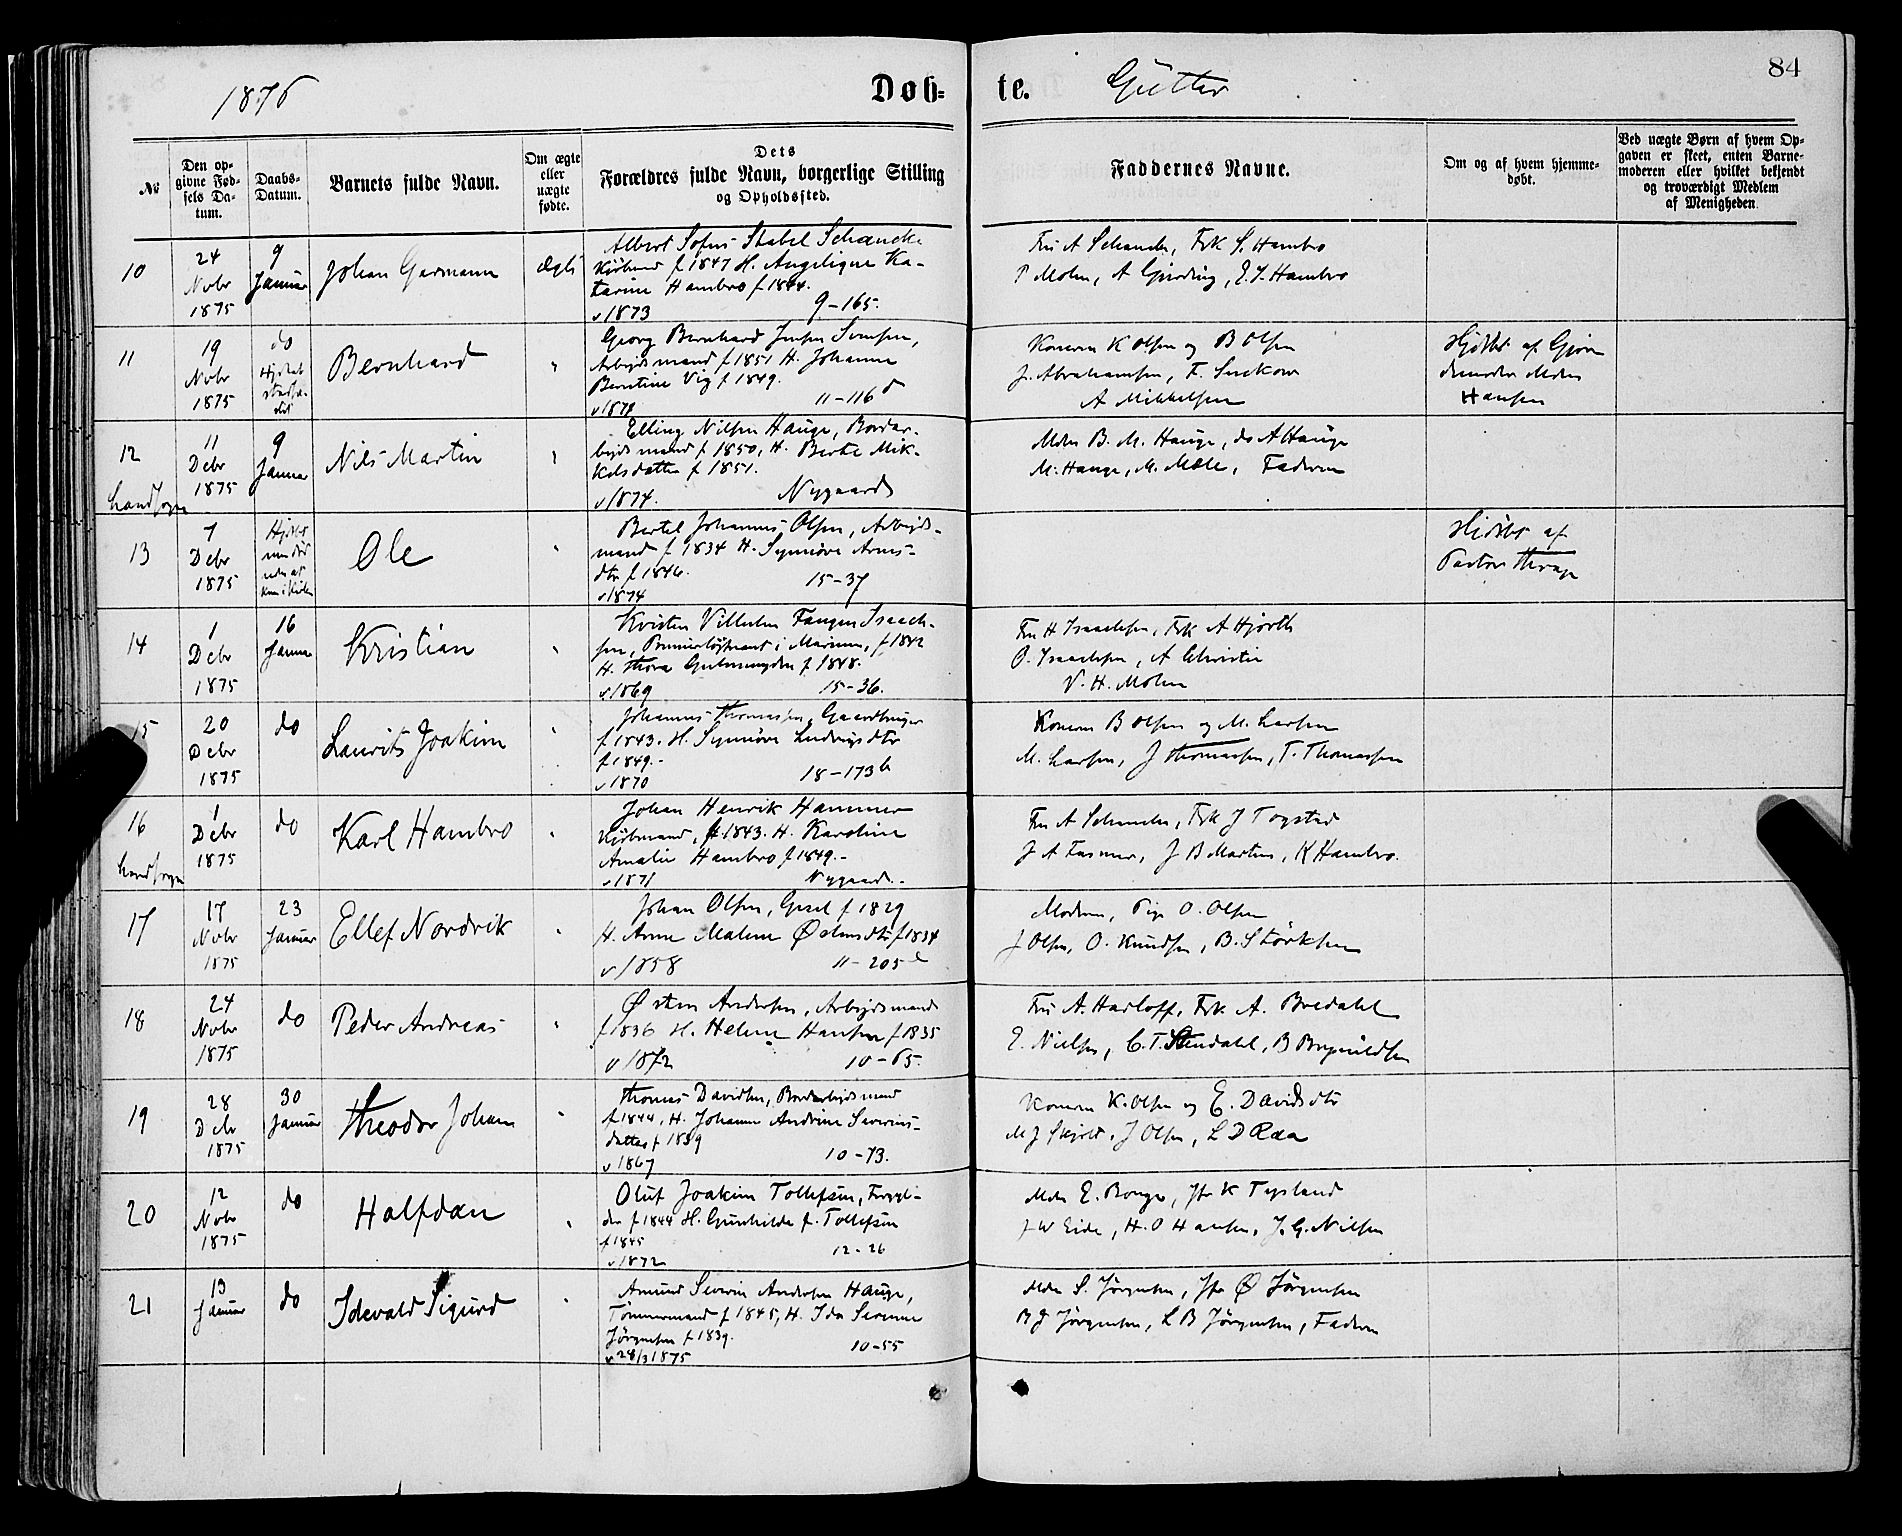 1876
Døb=
te.
Gutter
84
№
Den op-
givne Fød-
sels Da-
tum.
Daabs-
Datum.
Barnets fulde Navn.
Om ægte
eller
uægte
fødte.
Dets
Forældres fulde Navn, borgerlige Stilling
og Opholdssted.
Faddernes Navne.
Om og af hvem hjemme-
døbt.
Ved uægte Børn af hvem Op-
gaven er skeet, enten Barne-
moderen eller hvilket bekjendt
og troværdigt Medlem
af Menigheden.
10
24
Nobr
1875
9
Januar
Johan Garmann
Ægte
Albert Sofus Stabel Schancke
Kjøbmd f 1847 H. Angelique Ka-
tarine Hambro f 1844.
v 1873 9-165.
Fru A Schancke, Frk S. Hambro
P Mohn, A Gjerding, E. J. Hambro
11
19
Nobr
1875
do
Bernhard
"
Georg Bernhard Jensen
Arbejdsmand f 1851 H. Johanne
Berntine Vig f 1849.
11-116
Konerne K Olsen og B Olsen
J. Abrahamsen, F. Suckow
A Mikkelsen
Hjdbt af Gjor
demoder Mdm
Hansen
12
Landsogn
11
Debr
1875
9
Januar
Nils Martin
"
Elling Nilsen Hauge, Bordar-
bejdsmand f 1850, H. Berte Mik-
kelsdatter f 1851.
v 1874. Nygaard
Mdm B. M. Hauge, do A Hauge
M. Hauge, M. Mæle, Faderen
13
7
Debr
1875
Ole
"
Bertel Johannes Olsen, Arbejds-
mand f 1834 H. Synnøve Arns-
dtr f 1846.
v 1874 15-37
Hjdbt af
Pastor Thrap
14
1
Debr
1875
16
Januar
Kristian
"
Kristen Vilhelm Fangen Isaach-
sen, Premierløjtnant i Marinen, f 1842
H. Thora f 1848.
v 1869 15-36.
Fru H Isaachsen, Frk A Hjorth
O. Isaachsen, A Christie
V. H. Mohn
15
20
Debr
1875
do
Laurits Joakim
"
Johannes Thomassen,
f 1843. H. Synnøve Ludvigsdtr
f 1849.-
v 1870 18-173b
Konerne B Olsen og M. Larsen
M. Larsen, J Thomassen, T. Thomassen
16
Landsogn
1
Debr
1875
do
Karl Hambro
"
Johan Henrik Hammer
Kjøbmand, f 1843. H. Karoline
Amalie Hambro f 1849.-
v 1871 Nygaard.-
Fru A Schancke, Frk J Togstad
J A Fasmer, J B Martens, K Hambro.
17
17
Nobr
1875
23
Januar
Ellef Nordvik
"
Johan Olsen, f 1829
H. Anne Malene f 1834
v 1858 11-205
Moderen, Pige O. Olsen
J Olsen, O. Knudsen, B. Størksen
18
24
Nobr
1875
do
Peder Andreas
"
Østen Andersen, Arbejdsmand
f 1836 H. Helene Hansen f 1835
v 1872 10-65.
Fru A. Harloff, Frk A. Bredahl
E. Nielsen, C. T. Stendahl, B Brynildsen
19
28
Debr
1875
30
Januar
Theodor Johan
"
Thomas Davidsen, Bordarbejdsmand
f 1844, H. Johanne Andrine Severins-
datter f 1839
v 1867 10-73.
Konerne K. Olsen og E. Davidsdtr
M J Skjold, J Olsen, L D Raa
20
12
Nobr
1875
do
Halfdan
"
Oluf Joakim Tollefsen,
f 1844 H. Gunhilde f. Tollefsen
f 1845
v 1872 12-26
Mdm E. Bonge, Jfr K Tysland
J W Eide, H. O Hansen, J. G. Nilsen
21
13
Januar
do
Idevald Sigurd
"
Amund Severin Andersen Hauge,
Tømmermand f 1845, H. Ida Serine
Jørgensen f 1839.
v 28/3 1875 10-55
Mdm S. Jørgensen, Jfr Ø Jørgensen
B J Jørgensen, L B Jørgensen, Faderen